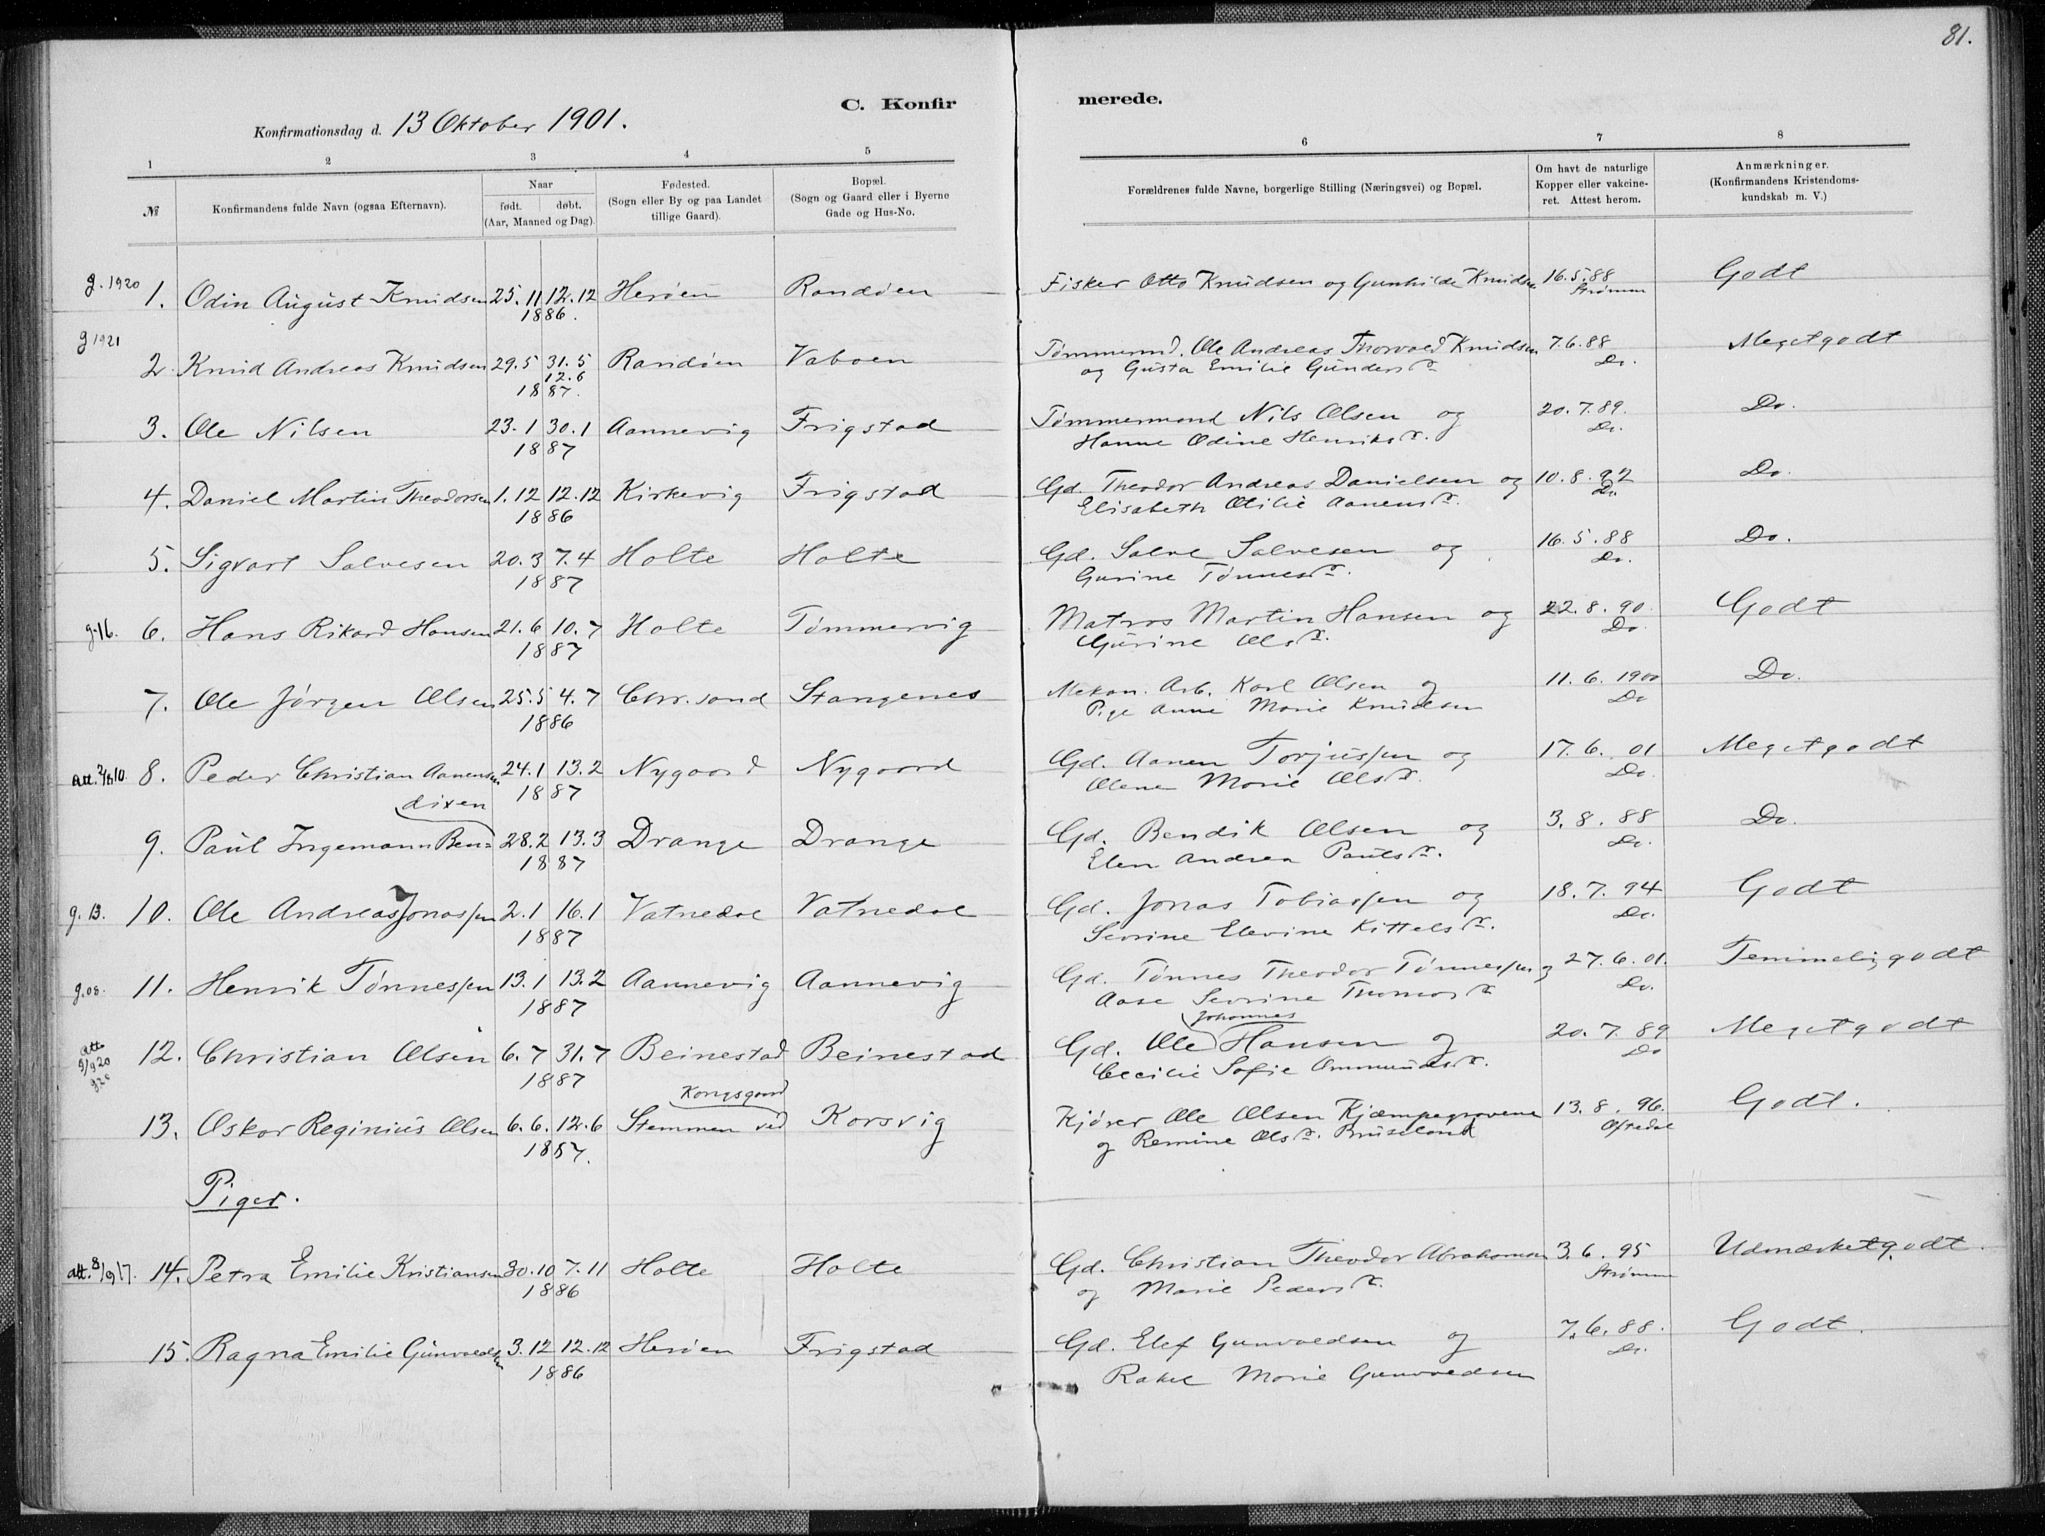 81.
C. Konfirmerede.
Konfirmationsdag d. 13 Oktober 1901.
1 2 3 4 5 6 7 8
№ Konfirmandens fulde Navn (ogsaa Efternavn). Naar født. døbt. (Aar, Maaned og Dag). Fødested. (Sogn eller By og paa Landet tillige Gaard). Bopæl. (Sogn og Gaard eller i Byerne Gade og Hus-No. Forældrenes fulde Navne, borgerlige Stilling (Næringsvei) og Bopæl. Om havt de naturlige Kopper eller vakcineret. Attest herom. Anmærkninger. (Konfirmandens Kristendomskundskab m. V.)
g. 1920 1. Odin August Knudsen 25.11 12.12 Herøen Randøen Fisker Otto Knudsen og Gunhilde Knudsen 16.5.88 Godt
1886. Strømme
g 1921 2. Knud Andreas Knudsen 29.5 31.5 Randøen Vaboen Tømmermd. Ole Andreas Thorvald Knudsen 7.6.88 Meget godt
12.6 og Gusta Emilie Gundersdr. Do.
1887.
3. Ole Nilsen 23.1 30.1 Aannevig Frigstad Tømmermand Nils Olsen og 20.7.89. Do.
1887 Hanne Odine Henriksdr. Do.
4. Daniel Martin Theodorsen 1.12 12.12 Kirkevig Frigstad Gd. Theodor Andreas Danielsen og 10.8.92 Do.
1886 Elisabeth Otilie Aanensdr. Do
5. Sigvart Salvesen 20.3 7.4 Holte Holte Gd. Salve Salvesen og 16.5.88 Do.
1887 Gurine Tønnesdr. Do.
g.16. 6. Hans Rikard Hansen 21.6 10.7 Holte Tømmervig Matros Martin Hansen og 22.8.90. Godt
1887 Gurine Olsdr. Do.
7. Ole Jørgen Olsen 25.5 4.7 Chr.sand Stangenes Mekan. Arb. Karl Olsen og 11.6.1900 Do.
1886 Pige Anne Marie Knudsen Do
Att. 8. Peder Christian Aanensen 24.1 13.2 Nygaard Nygaard Gd. Aanen Torjussen og 17.6.01 Meget godt
1887 Olene Marie Olsdr. Do.
dixen
9. Paul Ingemann Ben= 28.2 13.3 Drange Drange Gd. Bendik Olsen og 3.8.88 Do.
1887 Elen Andrea Paulsdr. Do.
g. 13. 10. Ole Andreas Jonassen 2.1 16.1 Vatnedal Vatnedal Gd. Jonas Tobiassen og 18.7.94 Godt
1887 Sevrine Elevine Kittelsdr. Do.
g.08. 11. Henrik Tønnessen 13.1 13.2 Aannevig Aannevig Gd. Tønnes Theodor Tønnessen og 27.6.01. Temmelig godt
1887 Aase Sevrine Thomasdr. Do.
Johannes
Att. 9/9 20 g20 12. Christian Olsen 6.7 31.7 Beinestad Beinestad Gd. Ole Hansen og 20.7.89 Meget godt
1887 Cecilie Sofie Ommundsdr. Do
Kongsgaard
13. Oskar Reginius Olsen 6.6. 12.6 Stemmen ved Korsvig Kjører Ole Olsen Kjæmpegrovene 13.8.96. Godt.
1887. og Remine Olsdr. Bruseland Ofstedal
Piger.
att. 8/9 17. 14. Petra Emilie Kristiansen 30.10 7.11 Holte Holte Gd. Christian Theodor Abrahamsen 3.6.95 Udmærket godt.
1886 og Marie Pedersdr. Strømme
15. Ragna Emilie Gunvaldsen 3.12 12.12 Herøen Frigstad Gd. Elef Gunvaldsen og 7.6.88. Godt.
1886 Rakel Marie Gunvaldsen Do.